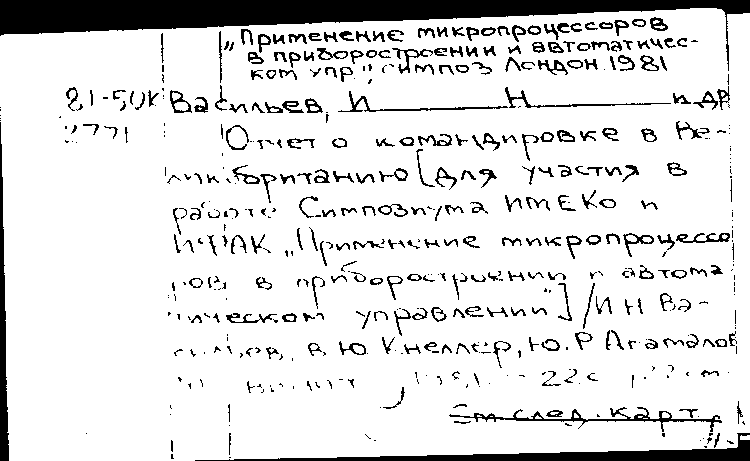 „Применение микропроцессоров
в приборостроении и автоматичес-
ком упр", симпоз Лондон. 1981
81-5УК Васильев, И Н и др
2771 Отчет о командировке в Ве-
ликобританию [для участия в
работе Симпозиума ИМЕКО и
ИФАК „Применение микропроцессо
ров в приборостроении и автома
тическом управлении"] / И Н Ва-
сильев, В Ю. Кнеллер, Ю. Р Агамалов
22с
См. след. карт.